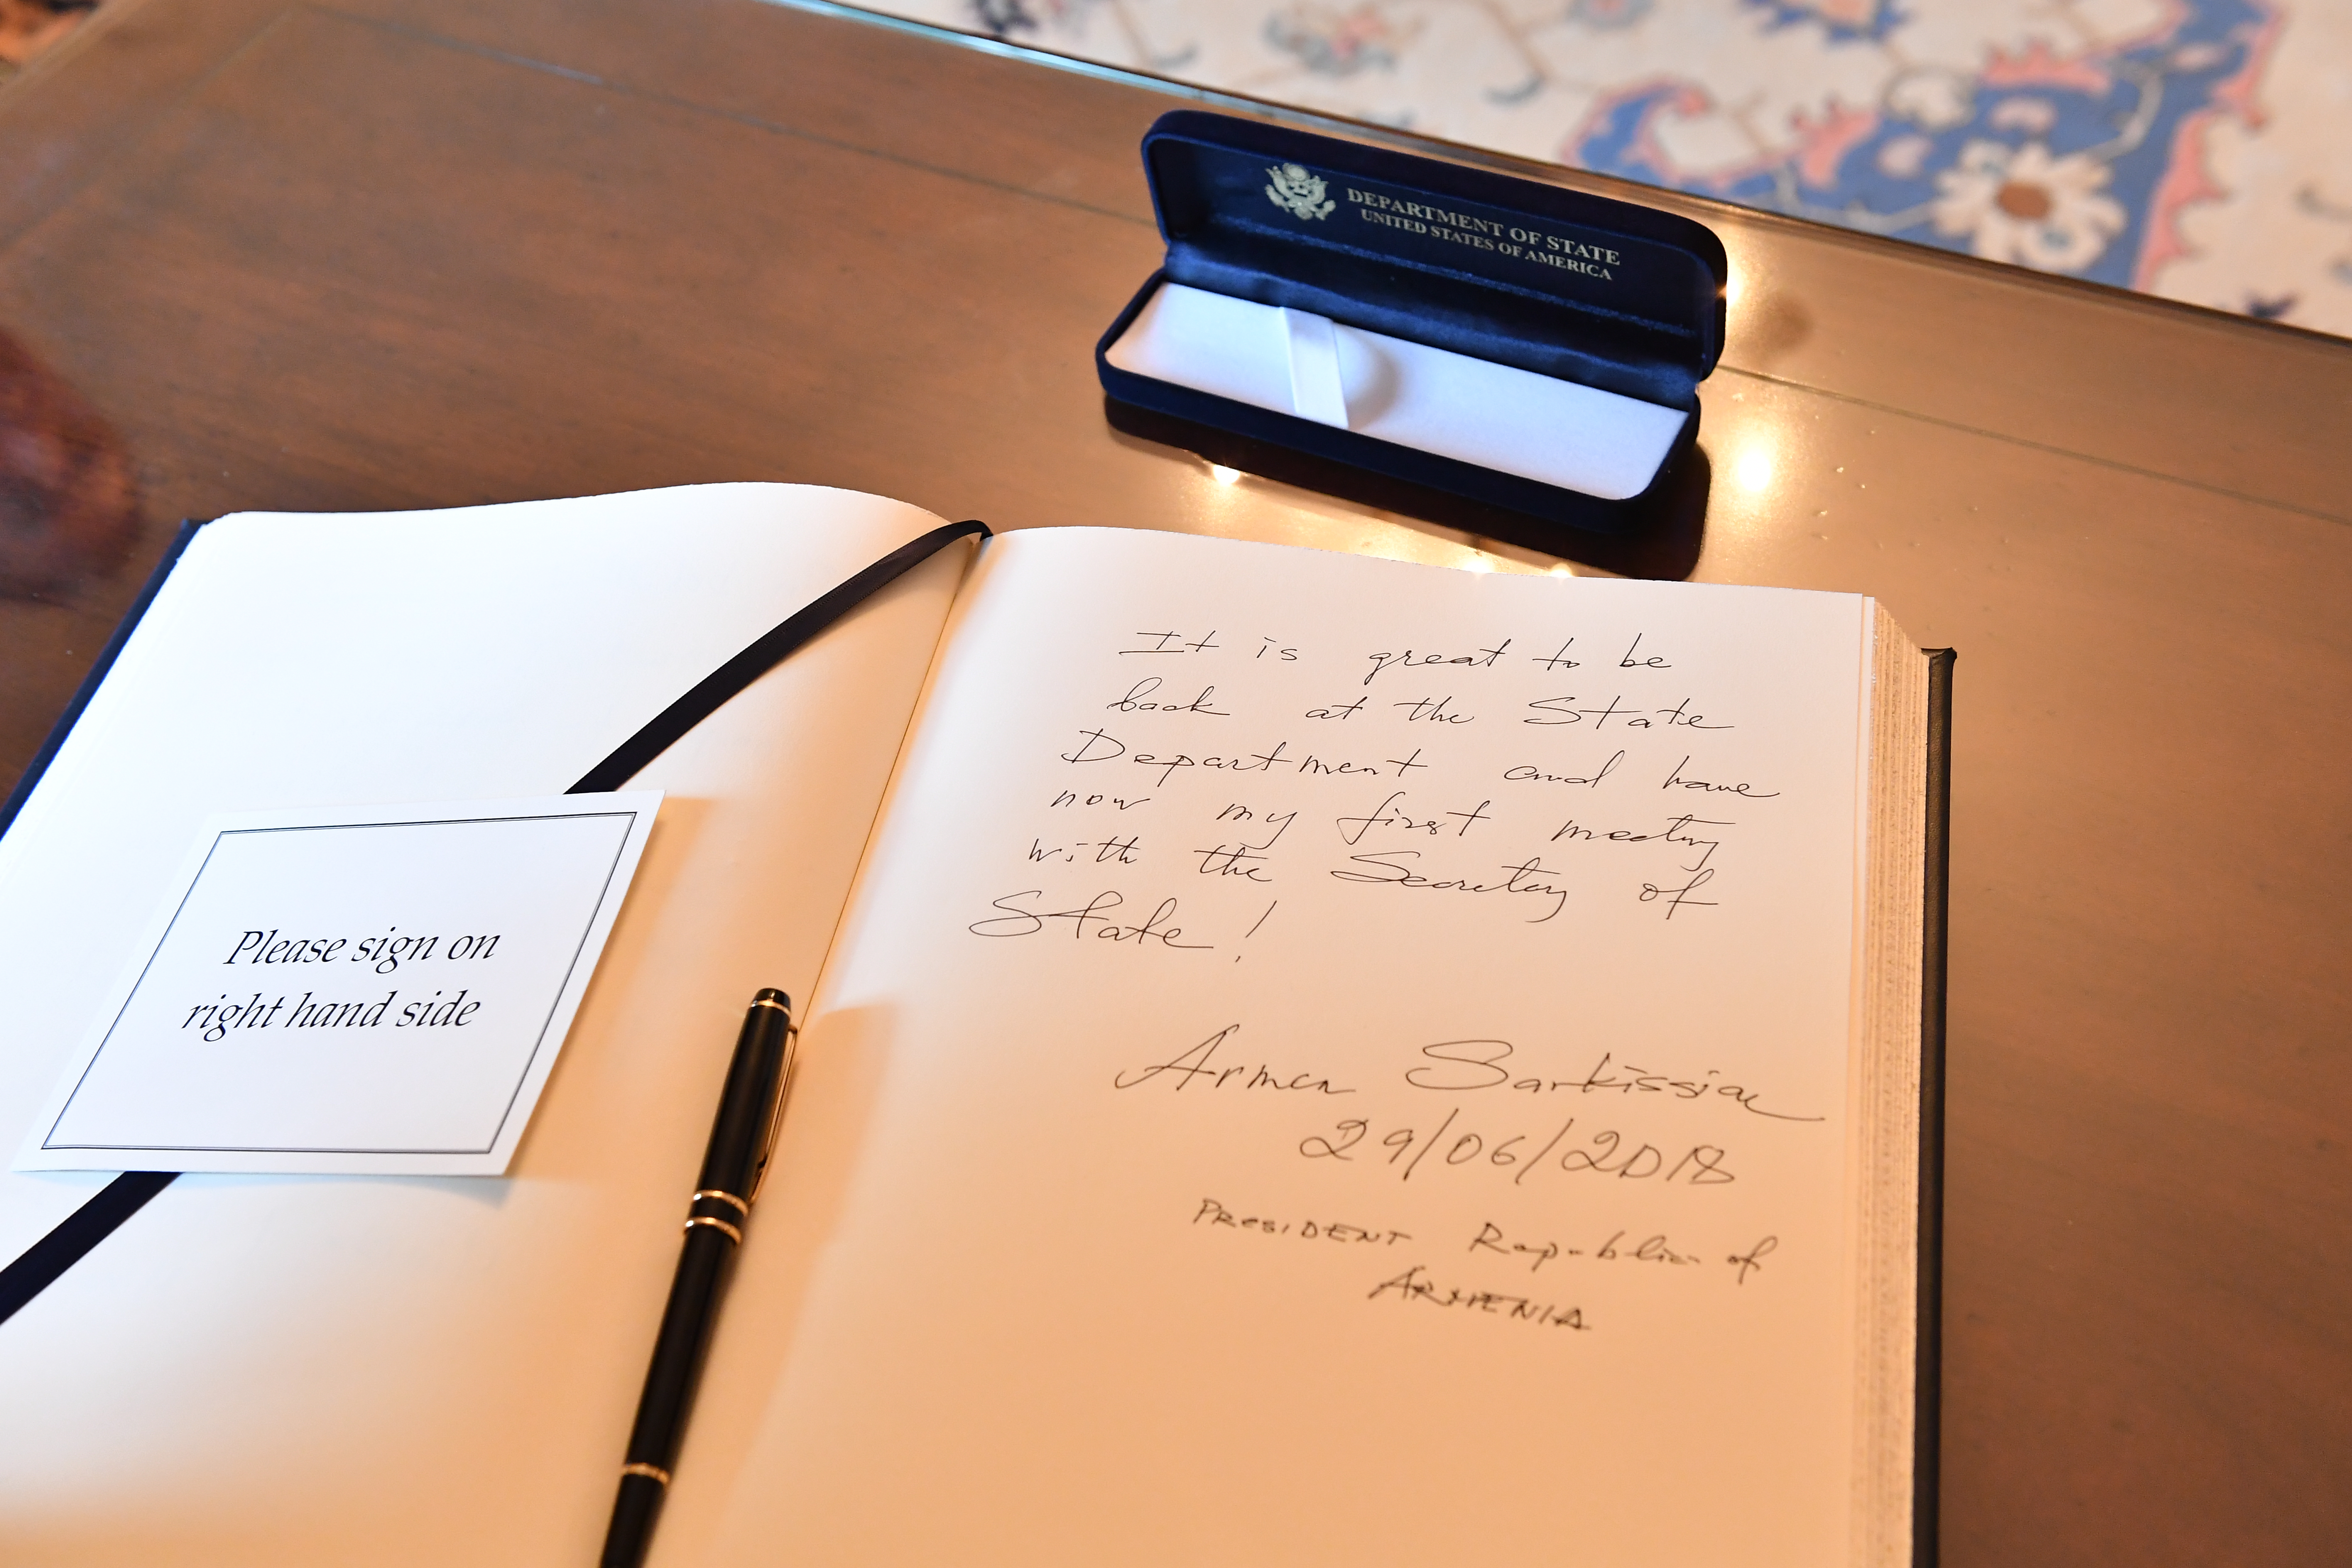 DEPARTMENT OF STATE
UNITED STATES OF AMERICA
Please sign on
right hand side
It is great to be
back at the State
Department and have
now my first meeting
with the Secretary of
State!
Armen Sarkissian
29/06/2018
PRESIDENT Republic of
ARMENIA